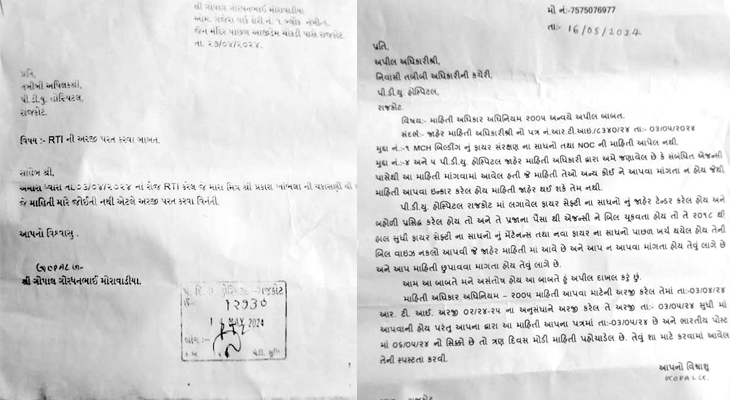 શ્રી ગોપાલ ગોરધનભાઈ મોરાવાડીયા.
તા. ૨૩/૦૫/૨૦૨૪.
પ્રતિ,
પી.ડી.યુ. હોસ્પિટલ,
રાજકોટ.
વિષય :- RTI ની અરજી પરત કરવા બાબત.
સાહેબ શ્રી,
અમારા દ્વારા તા.૦૩/૦૪/૨૦૨૪ નાં રોજ RTI કરેલ જે મારા મિત્ર શ્રી પ્રકાશ
જે માહિતી મારે જોઈતી નથી એટલે અરજી પરત કરવા વિનંતી.
આપનો વિશ્વાસુ.
શ્રી ગોપાલ ગોરધનભાઈ મોરાવાડીયા.
મો નં:-7575076977
તા:- 16/05/2024
પ્રતિ,
અપીલ અધિકારીશ્રી,
નિવાસી તબીબી અધિકારીની કચેરી,
પી.ડી.યુ હોસ્પિટલ,
રાજકોટ.
વિષય:- માહિતી અધિકાર અધિનિયમ ૨૦૦૫ અન્વયે અપીલ બાબત.
સંદર્ભ:- જાહેર માહિતી અધિકારીશ્રી નો પત્ર નં.આર.ટી.આઇ/૮૩૪૦/૨૪ તા:- 03/૦૫/૨૦૨૪
મુદ્દા નં.:-૧ MCH બિલ્ડીંગ નું ફાયર સંરક્ષણ ના સાધનો તથા NOC ની માહિતી આપેલ નથી.
મુદ્દા નં.:-૪ અને ૫ પી.ડી.યુ. હોસ્પિટલ જાહેર માહિતી અધિકારી દ્વારા અમે જણાવેલ છે કે સંબંધિત એજન્સી
પાસેથી આ માહિતી માંગવામાં આવેલ હતી જે માહિતી તેઓ અન્ય કોઈ ને આપવા માંગતા ન હોય જેથી
માહિતી આપવા ઇન્કાર કરેલ હોય માહિતી જાહેર થઈ શકે તેમ નથી.
પી.ડી.યુ. હોસ્પિટલ રાજકોટ માં લગાવેલ ફાયર સેફ્ટી ના સાધનો નું જાહેર ટેન્ડર કરેલ હોય અને
બહોળી પ્રસિદ્ધ કરેલ હોય તો અને તે પ્રજાના પૈસા થી એજન્સી ને બિલ ચૂકવતા હોય તો તે ૨૦૧૮ થી
હાલ સુધી ફાયર સેફ્ટી ના સાધનો નું મેંટેનન્સ તથા નવા ફાયર ના સાધનો પાછળ ખર્ચ થયેલ હોય તેની
બિલ વાઇઝ નકલો આપવી જે જાહેર માહિતી માં આવે છે અને આપ ન આપવા માંગતા હોય તેવું લાગે છે
અને આપ માહિતી છુપાવવા માગતા હોય તેવું લાગે છે.
આમ આ બાબતે મને અસંતોષ હોય આ બાબતે હું અપીલ દાખલ કરું છુ.
માહિતી અધિકાર અધિનિયમ – ૨૦૦૫ માહિતી આપવા માટેની અરજી કરેલ તેમાં તા:-03/૦૪/૨૪
આર. ટી. આઈ. અરજી ૦૨/૨૪-૨૫ ના અનુસંધાને અરજી કરેલ તે અરજી તા:- 03/૦૫/૨૪ સુધી માં
આપવાની હોય પરંતુ આપના દ્વારા આ માહિતી આપના પત્રમાં તા:-03/૦૫/૨૪ છે અને ભારતીય પોસ્ટ
માં ૦૬/૦૫/૨૪ નો સિક્કો છે તો ત્રણ દિવસ મોડી માહિતી પહોચાડેલ છે. તેવું શા માટે કરવામાં આવેલ
તેની સ્પસ્ટતા કરવી.
આપનો વિશ્વાશુ